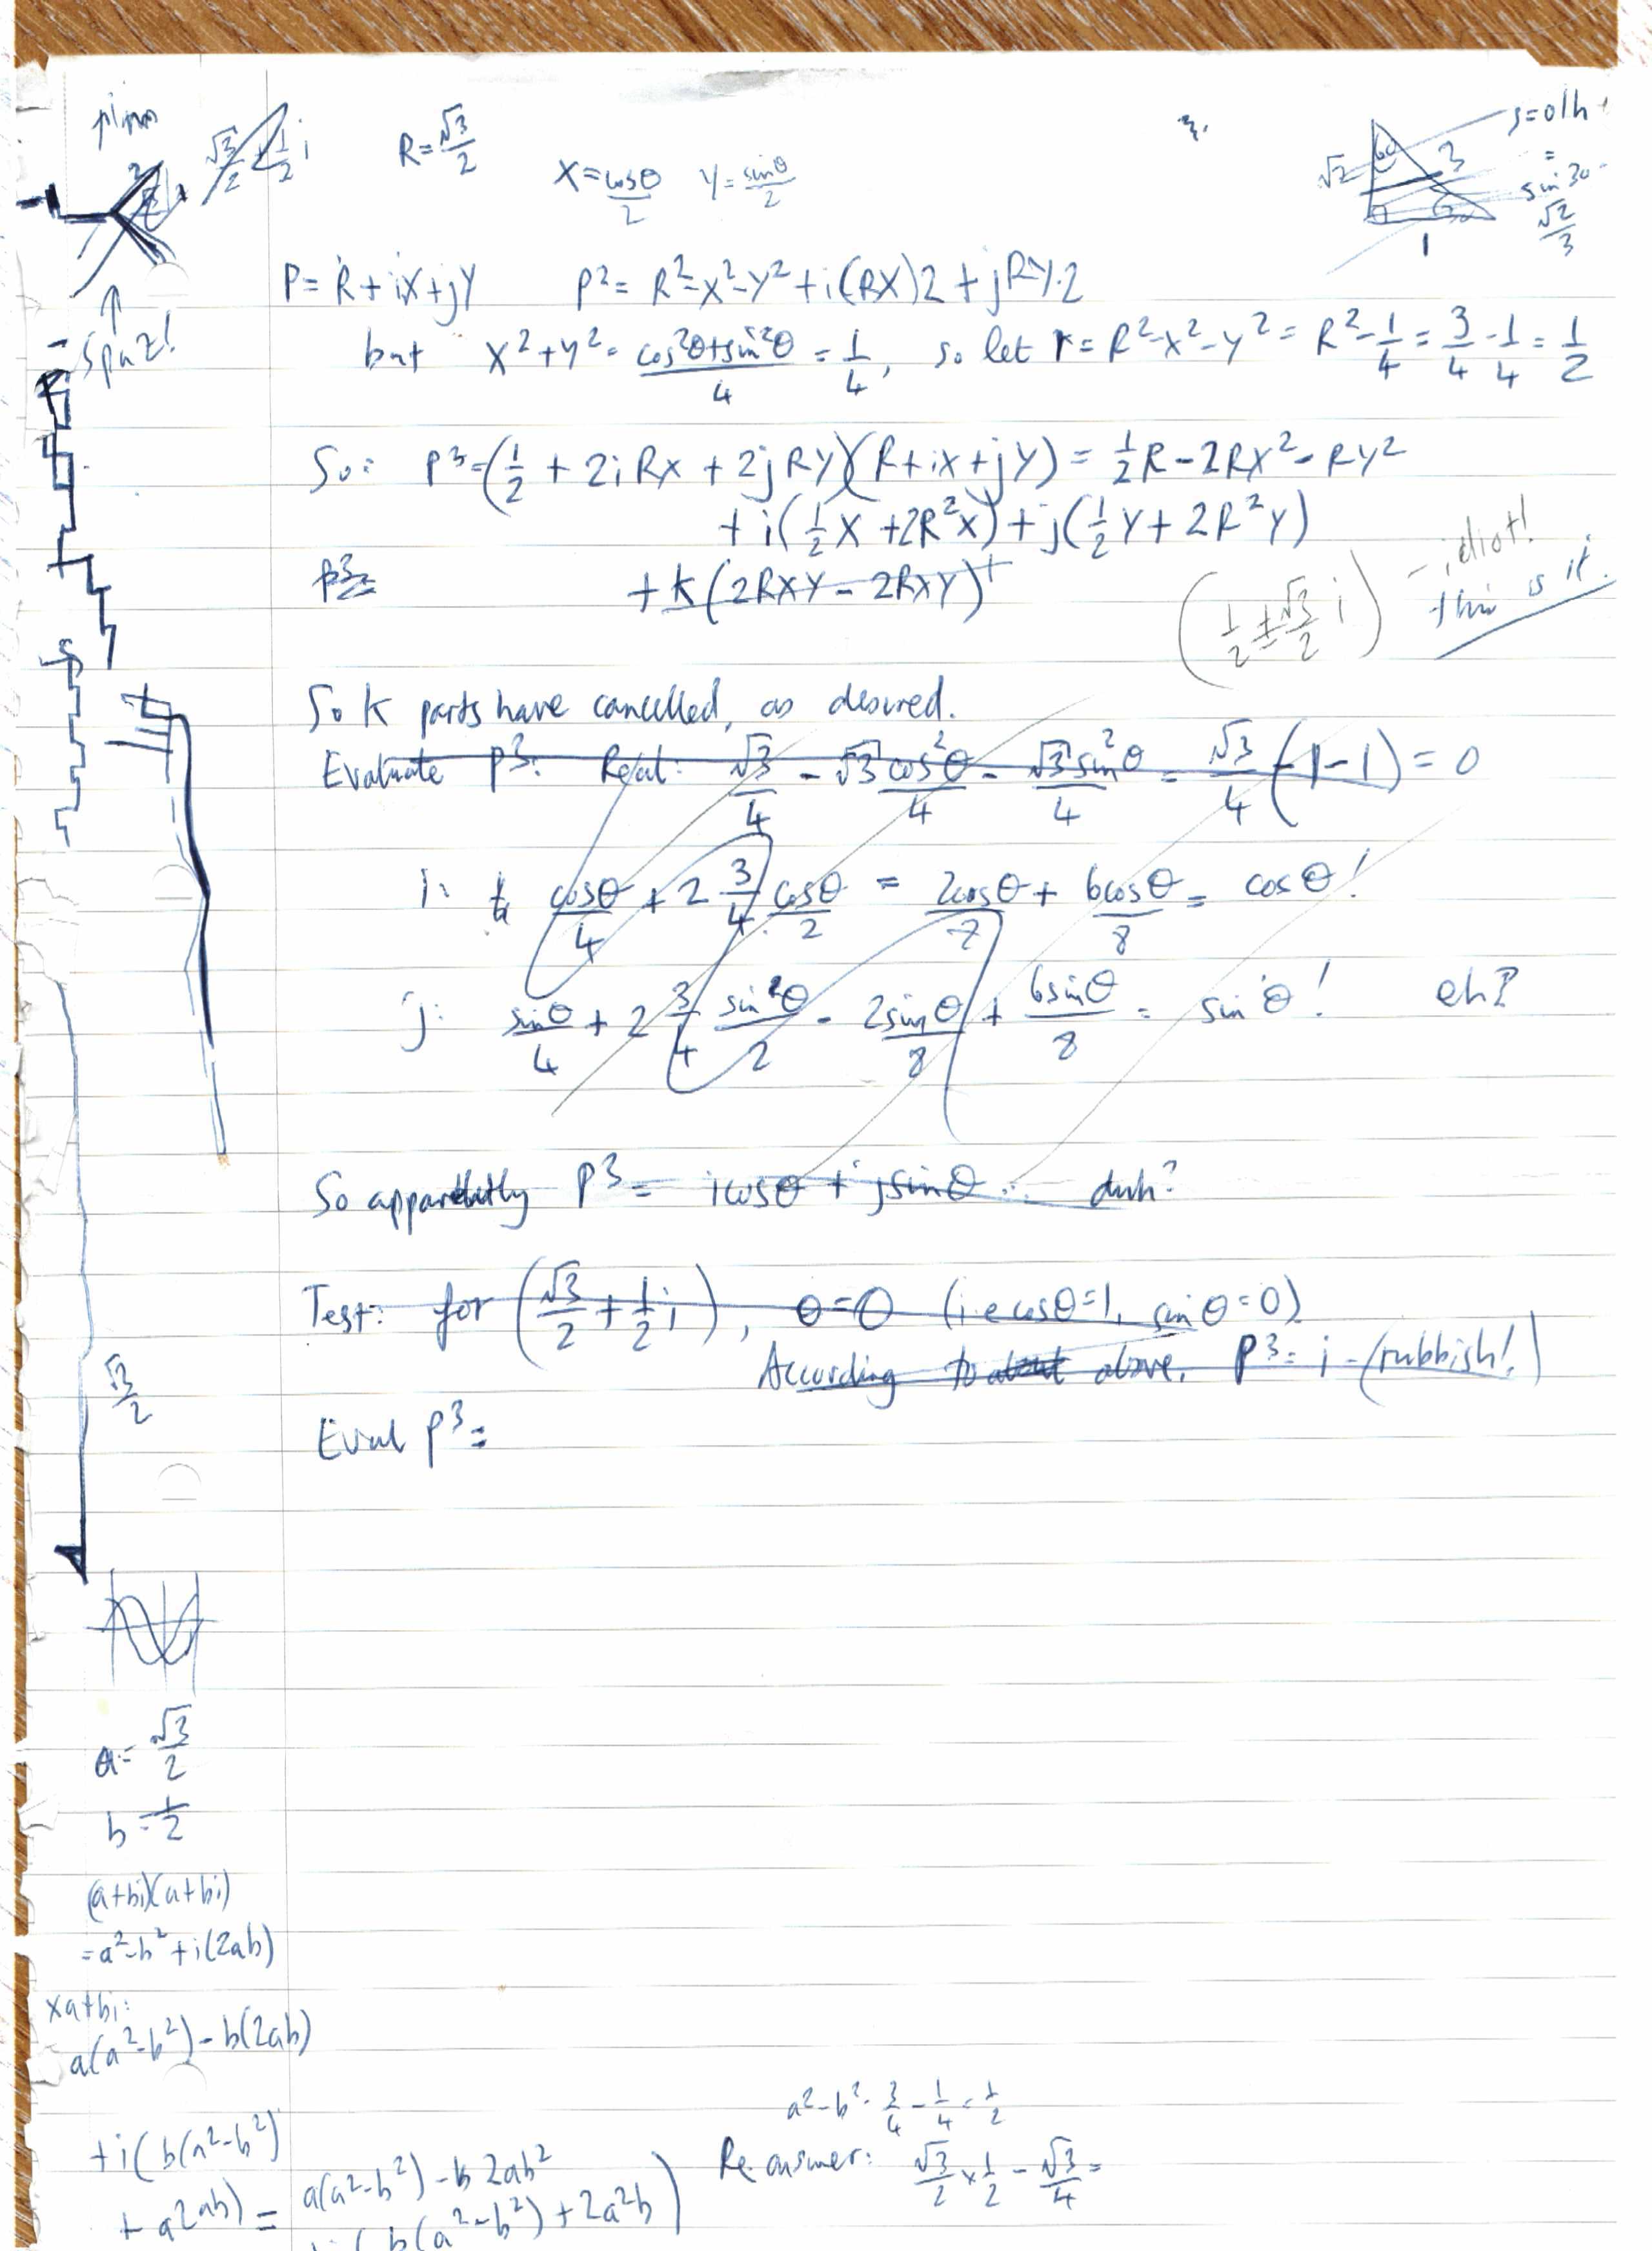 R=√3/2
X=cosθ/2 Y=sinθ/2
√2 60 3
1
s=o/h
=
sin 30
√2/3
√3/2 + 1/2 i
P=R+iX+jY P²=R²-X²-Y²+i(RX)2+jRY.2
Spaz!
but X²+Y²=(cos²θ+sin²θ)/4=1/4, so let r=R²-X²-Y²=R²-1/4=3/4-1/4=1/2
So: P³=(1/2+2iRX+2jRY)(R+iX+jY)=1/2R-2RX²-RY²
+i(1/2X+2R²X)+j(1/2Y+2R²Y)
P³=
+k(2RXY-2RXY)
(1/2±√3/2 i) -idiot!
this is it.
So k parts have cancelled, as desired.
Evaluate P³: Real: √3/4-√3cos²θ/4-√3sin²θ/4=√3/4(1-1)=0
i: cosθ/4+2 3/4 cosθ/2=2cosθ/7+6cosθ/8=cosθ!
j: sinθ/4+2 3/4 sin²θ/2-2sinθ/8+6sinθ/8=sinθ! eh?
So apparently P³=icosθ+jsinθ... duh?
Test: for (√3/2+1/2i), θ=0 (i.e cosθ=1, sinθ=0)
According to above, P³=i-(rubbish!)
√3/2
Eval P³=
a=√3/2
b=1/2
(a+bi)(a+bi)
=a²-b²+i(2ab)
xa+bi:
a(a²-b²)-b(2ab)
+i(b(a²-b²)
+a2ab)=
a(a²-b²)-b2ab²
b(a²-b²)+2a²b)
a²-b²=3/4-1/4=1/2
Re answer: √3/2×1/2-√3/4=